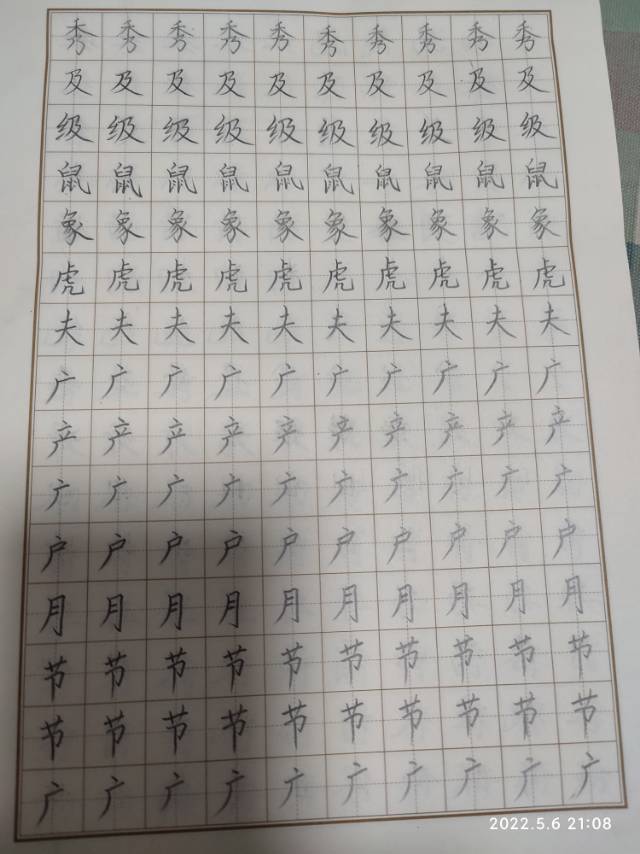 秀秀秀秀秀秀秀秀秀秀
及及及及及及及及及及
级级级级级级级级级级
鼠鼠鼠鼠鼠鼠鼠鼠鼠鼠
象象象象象象象象象象
虎虎虎虎虎虎虎虎虎虎
夫夫夫夫夫夫夫夫夫夫
广广广广广广广广广广
产产产产产产产产产产
广广广广广广广广广广
户户户户户户户户户户
月月月月月月月月月月
节节节节节节节节节节
节节节节节节节节节节
广广广广广广广广广广
2022.5.6 21:08